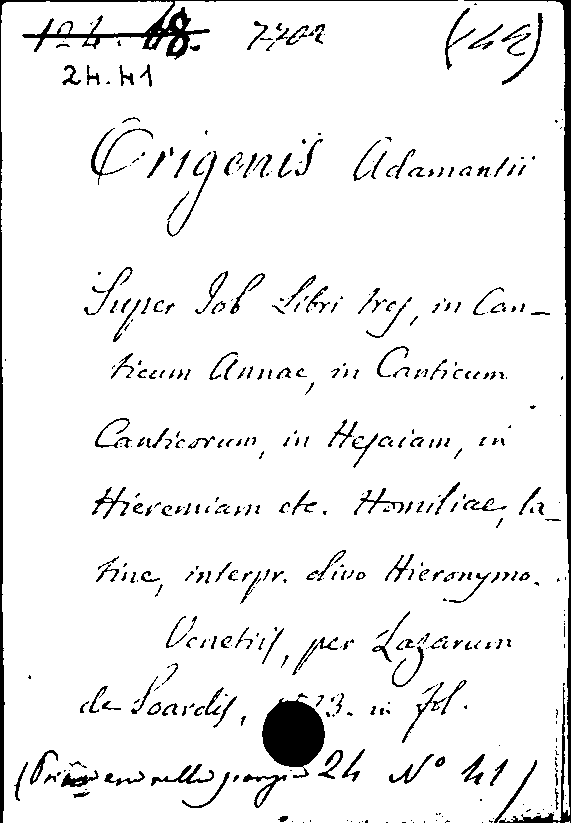 124.18. 7702
24.41
Origenis Adamantii
Super Job Libri tres, in Can-
ticum Annae, in Canticum
Canticorum, in Hesaiam, in
Hieremiam etc. Homiliae, la-
tine, interpr. divo Hieronymo.
Venetiis, per Lazarum
de Soardis, in fol.
24 N° 41)